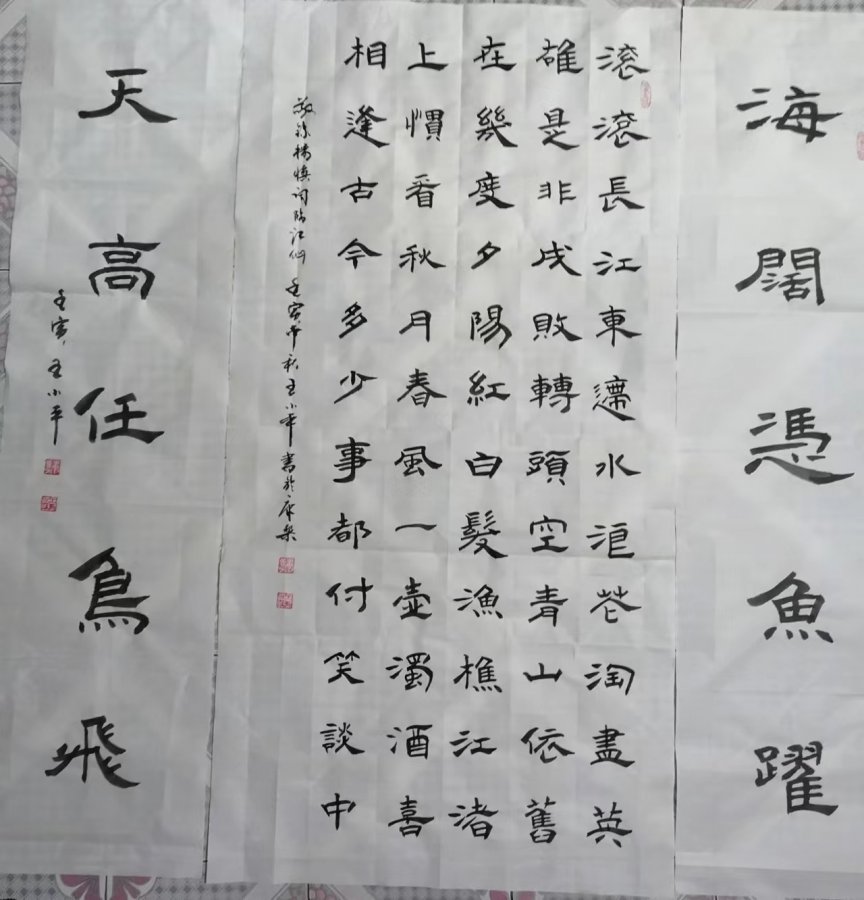 海闊憑魚躍
滾滾長江東遰水浪花淘盡英
雄是非成敗轉頭空青山依舊
在幾度夕陽紅白髮漁樵江渚
上慣看秋月春風一壺濁酒喜
相逢古今多少事都付笑談中
敬錄楊慎詞臨江仙 壬寅中秋王小平書於康樂
天高任鳥飛
壬寅 王小平